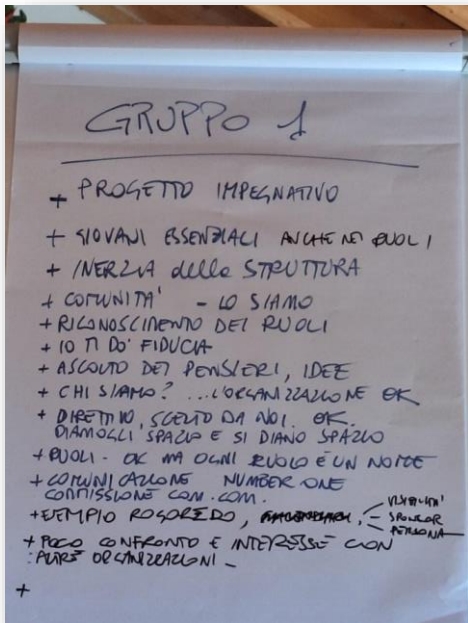 GRUPPO 1
+ PROGETTO IMPEGNATIVO
+ GIOVANI ESSENZIALI ANCHE NEI RUOLI
+ INERZIA della STRUTTURA
+ COMUNITA' - LO SIAMO
+ RICONOSCIMENTO DEI RUOLI
+ IO TI DO' FIDUCIA
+ ASCOLTO DEI PENSIERI, IDEE
+ CHI SIAMO? ...L'ORGANIZZAZIONE OK
+ DIRETTIVO, SCELTO DA NOI. OK.
DIAMOGLI SPAZIO E SI DIANO SPAZIO
+ RUOLI - OK MA OGNI RUOLO È UN NOME
+ COMUNICAZIONE NUMBER ONE
COMMISSIONE COM. COM.
+ ESEMPIO ROGOREDO, - VISIBILITA'
- SPONSOR
- PERSONA
+ POCO CONFRONTO E INTERESSE CON
: ALTRE ORGANIZZAZIONI -
+